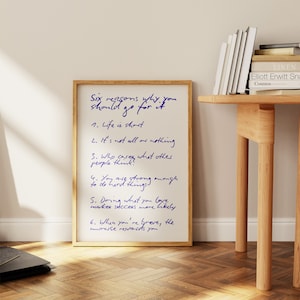 Six reasons why you
should go for it
1. Life is short
2. It's not all or nothing
3. Who cares what other
people think?
4. You are strong enough
to do hard things
5. Doing what you love
makes success more likely
6. When you're brave, the
universe rewards you
Elliott Erwitt